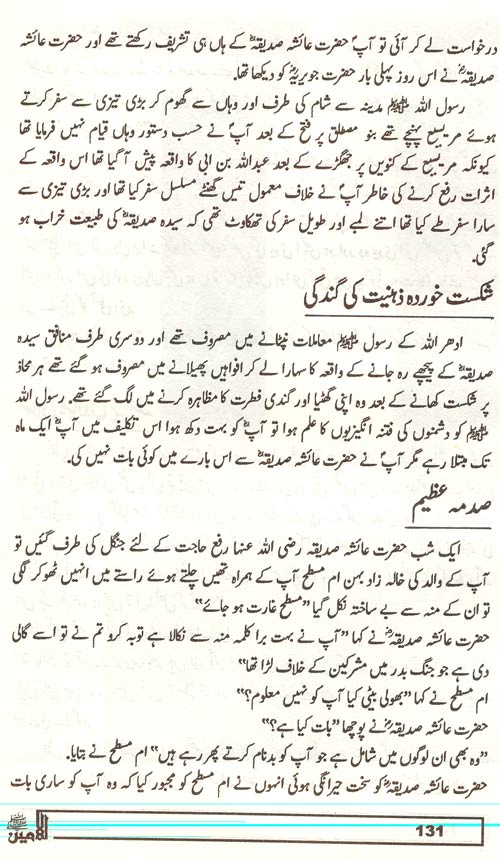 درخواست لے کر آئی تو آپؐ حضرت عائشہ صدیقہؓ کے ہاں ہی تشریف رکھتے تھے اور حضرت عائشہ
صدیقہؓ نے اس روز پہلی بار حضرت جویریہؓ کو دیکھا تھا۔
رسول اللہ ﷺ مدینہ سے شام کی طرف اور وہاں سے گھوم کر بڑی تیزی سے سفر کرتے
ہوئے مریسیع پہنچے تھے بنو مصطلق پر فتح کے بعد آپؐ نے حسب دستور وہاں قیام نہیں فرمایا تھا
کیونکہ مریسیع کے کنویں پر جھگڑے کے بعد عبداللہ بن ابی کا واقعہ پیش آ گیا تھا اس واقعہ کے
اثرات رفع کرنے کی خاطر آپؐ نے خلاف معمول تیس گھنٹے مسلسل سفر کیا تھا اور بڑی تیزی سے
سارا سفر طے کیا تھا اتنے لمبے اور طویل سفر کی تھکاوٹ تھی کہ سیدہ صدیقہؓ کی طبیعت خراب ہو
گئی۔
شکست خوردہ ذہنیت کی گندگی
ادھر اللہ کے رسول ﷺ معاملات نپٹانے میں مصروف تھے اور دوسری طرف منافق سیدہ
صدیقہؓ کے پیچھے رہ جانے کے واقعہ کا سہارا لے کر افواہیں پھیلانے میں مصروف ہو گئے تھے ہر محاذ
پر شکست کھانے کے بعد وہ اپنی گھٹیا اور گندی فطرت کا مظاہرہ کرنے میں لگ گئے تھے۔ رسول اللہ
ﷺ کو دشمنوں کی فتنہ انگیزیوں کا علم ہوا تو آپؐ کو بہت دکھ ہوا اس تکلیف میں آپؐ ایک ماہ
تک مبتلا رہے مگر آپؐ نے حضرت عائشہ صدیقہؓ سے اس بارے میں کوئی بات نہیں کی۔
صدمہ عظیم
ایک شب حضرت عائشہ صدیقہ رضی اللہ عنہا رفع حاجت کے لئے جنگل کی طرف گئیں تو
آپ کے والد کی خالہ زاد بہن ام مسطح آپ کے ہمراہ تھیں چلتے ہوئے راستے میں انہیں ٹھوکر لگی
تو ان کے منہ سے بے ساختہ نکل گیا "مسطح غارت ہو جائے"
حضرت عائشہ صدیقہؓ نے کہا "آپ نے بہت برا کلمہ منہ سے نکالا ہے توبہ کرو تم نے تو اسے گالی
دی ہے جو جنگ بدر میں مشرکین کے خلاف لڑا تھا"
ام مسطح نے کہا "بھولی بیٹی کیا آپ کو نہیں معلوم؟"
حضرت عائشہ صدیقہؓ نے پوچھا "بات کیا ہے؟"
"وہ بھی ان لوگوں میں شامل ہے جو آپ کو بدنام کرتے پھر رہے ہیں" ام مسطح نے بتایا۔
حضرت عائشہ صدیقہؓ کو سخت حیرانگی ہوئی انہوں نے ام مسطح کو مجبور کیا کہ وہ آپ کو ساری بات
الامین ﷺ 131